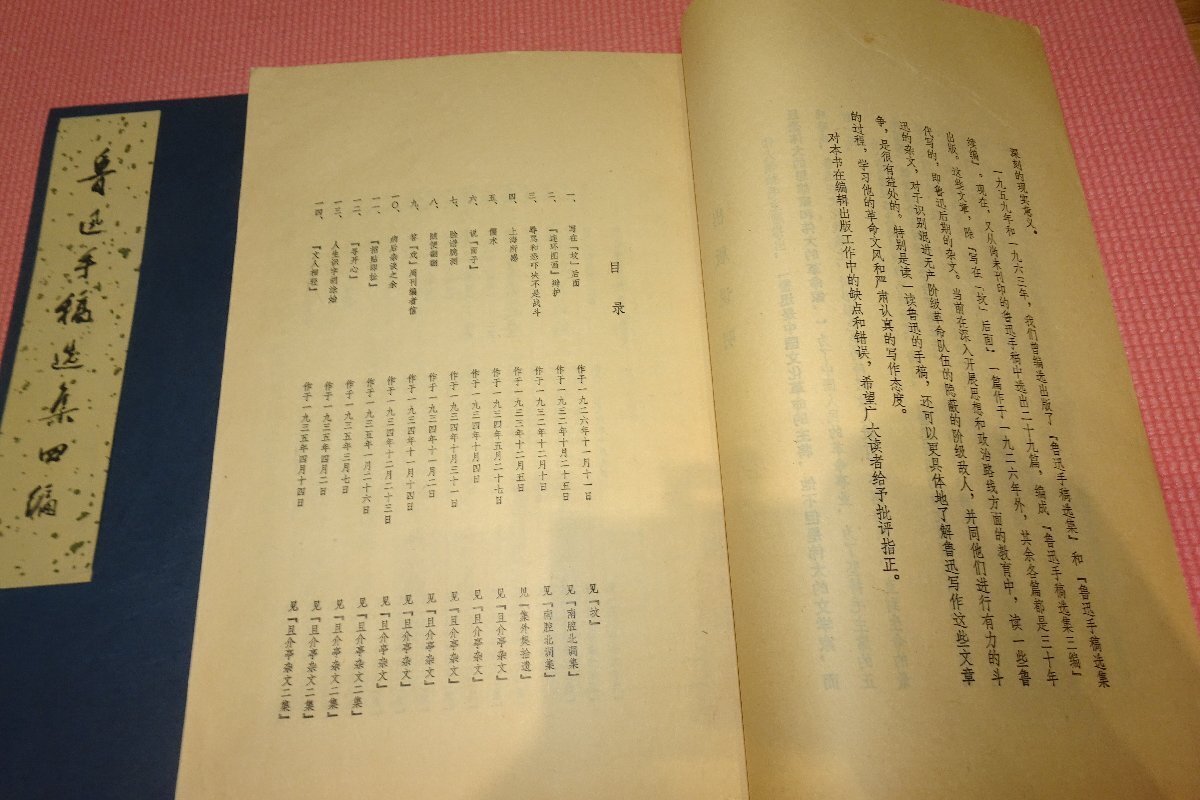 深刻的现实意义。
一九五九年和一九六三年，我们曾编选出版了『鲁迅手稿选集』和『鲁迅手稿选集
续编』。现在，又从尚未刊印的鲁迅手稿中选出二十九篇，编成『鲁迅手稿选集三编』
出版。这些文章，除『写在「坟」后面』一篇作于一九二六年外，其余各篇都是三十年
代写的，即鲁迅后期的杂文。当前在深入开展思想和政治路线方面的教育中，读一些鲁
迅的杂文，对于识别混进无产阶级革命队伍的隐蔽的阶级敌人，并同他们进行有力的斗
争，是很有益处的。特别是读一读鲁迅的手稿，还可以更具体地了解鲁迅写作这些文章
的过程，学习他的革命文风和严肃认真的写作态度。
对本书在编辑出版工作中的缺点和错误，希望广大读者给予批评指正。
目录
一、写在「坟」后面 作于一九二六年十一月十一日 见『坟』
二、『连环图画』辩护 作于一九三二年十月二十五日 见『南腔北调集』
三、辱骂和恐吓决不是战斗 作于一九三二年十二月十日 见『南腔北调集』
四、上海所感 作于一九三三年十二月五日 见『集外集拾遗』
五、儒术 作于一九三四年五月二十七日 见『且介亭杂文』
六、说『面子』 作于一九三四年十月四日 见『且介亭杂文』
七、脸谱臆测 作于一九三四年十月三十一日 见『且介亭杂文』
八、随便翻翻 作于一九三四年十一月二日 见『且介亭杂文』
九、答『戏』周刊编者信 作于一九三四年十一月十四日 见『且介亭杂文』
一〇、病后杂谈之余 作于一九三四年十二月二十三日 见『且介亭杂文』
一一、『招贴即扯』 作于一九三五年一月二十六日 见『且介亭杂文二集』
一二、『寻开心』 作于一九三五年三月七日 见『且介亭杂文二集』
一三、人生识字胡涂始 作于一九三五年四月二日 见『且介亭杂文二集』
一四、『文人相轻』 作于一九三五年四月十四日 见『且介亭杂文二集』
鲁迅手稿选集四编